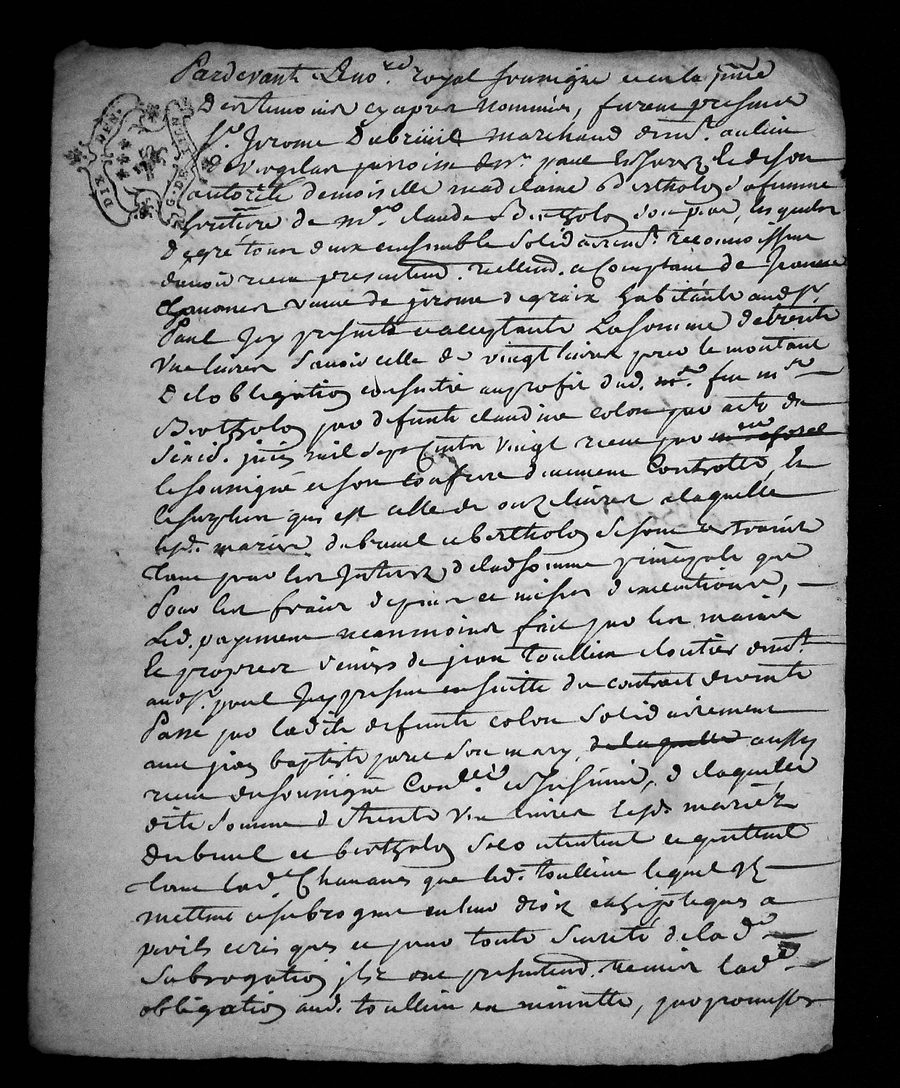 DIX DEN.
G. DE LYON
Pardevant Le no.re royal soussigné et en la pnce
Des temoins cy apres nommés, furent presents
Sr. Jerome Dubreüil marchand dem.t au lieu
De paroisse de St. paul En Jarez Et de son
autorité demoiselle madelaine Bertholon sa femme
heritiere de me claude Bertholon son pere, lesquels
De gré tous deux ensemble Solidairem.t reconnoissent
d'avoir receu presentem.t reellem.t et Comptant de Jeanne
Chavanes veuve de jerome degraix habitante aud. St.
Paul Icy presente et acceptante La Somme de trente
Vne livres Sçavoir celle de vingt livres pour le montant
De l'obligation consentie au profit dud. feu me
Bertholon par defunte claudine colon par acte du
juin mil Sept Cents vingt receu par
le soussigné et son confrere duement Controllé, Et
le surplus qui est celle de onze livres a laquelle
lesd. mariés dubreuil et bertholon se sont restraints
tant pour les Interets de lad. somme principale que
Pour les frais depens et mises d'executions,
Led. payement neanmoins fait par les mains
Et propres deniers de jean toullieu cloutier dem.t
aud. St. paul Icy present en suitte du contrat de vente
Passé par ladite defunte colon solidairement
avec jean baptiste son mary, de laquelle aussy
receu du soussigné Con.lé et Insinué, de laquelle
dite Somme de trente Vne livres lesd. mariéz
dubreuil et bertholon Se contentent et quittent
tant lad. Chavanes que led. toullieu lequel Ils
mettent et subrogent en leur droit et hipoteques a
perils et risques et pour toute Sureté de lad.
Subrogation ils ont presentem.t remis lad.
obligation aud. toullieu en minutte, par promesse